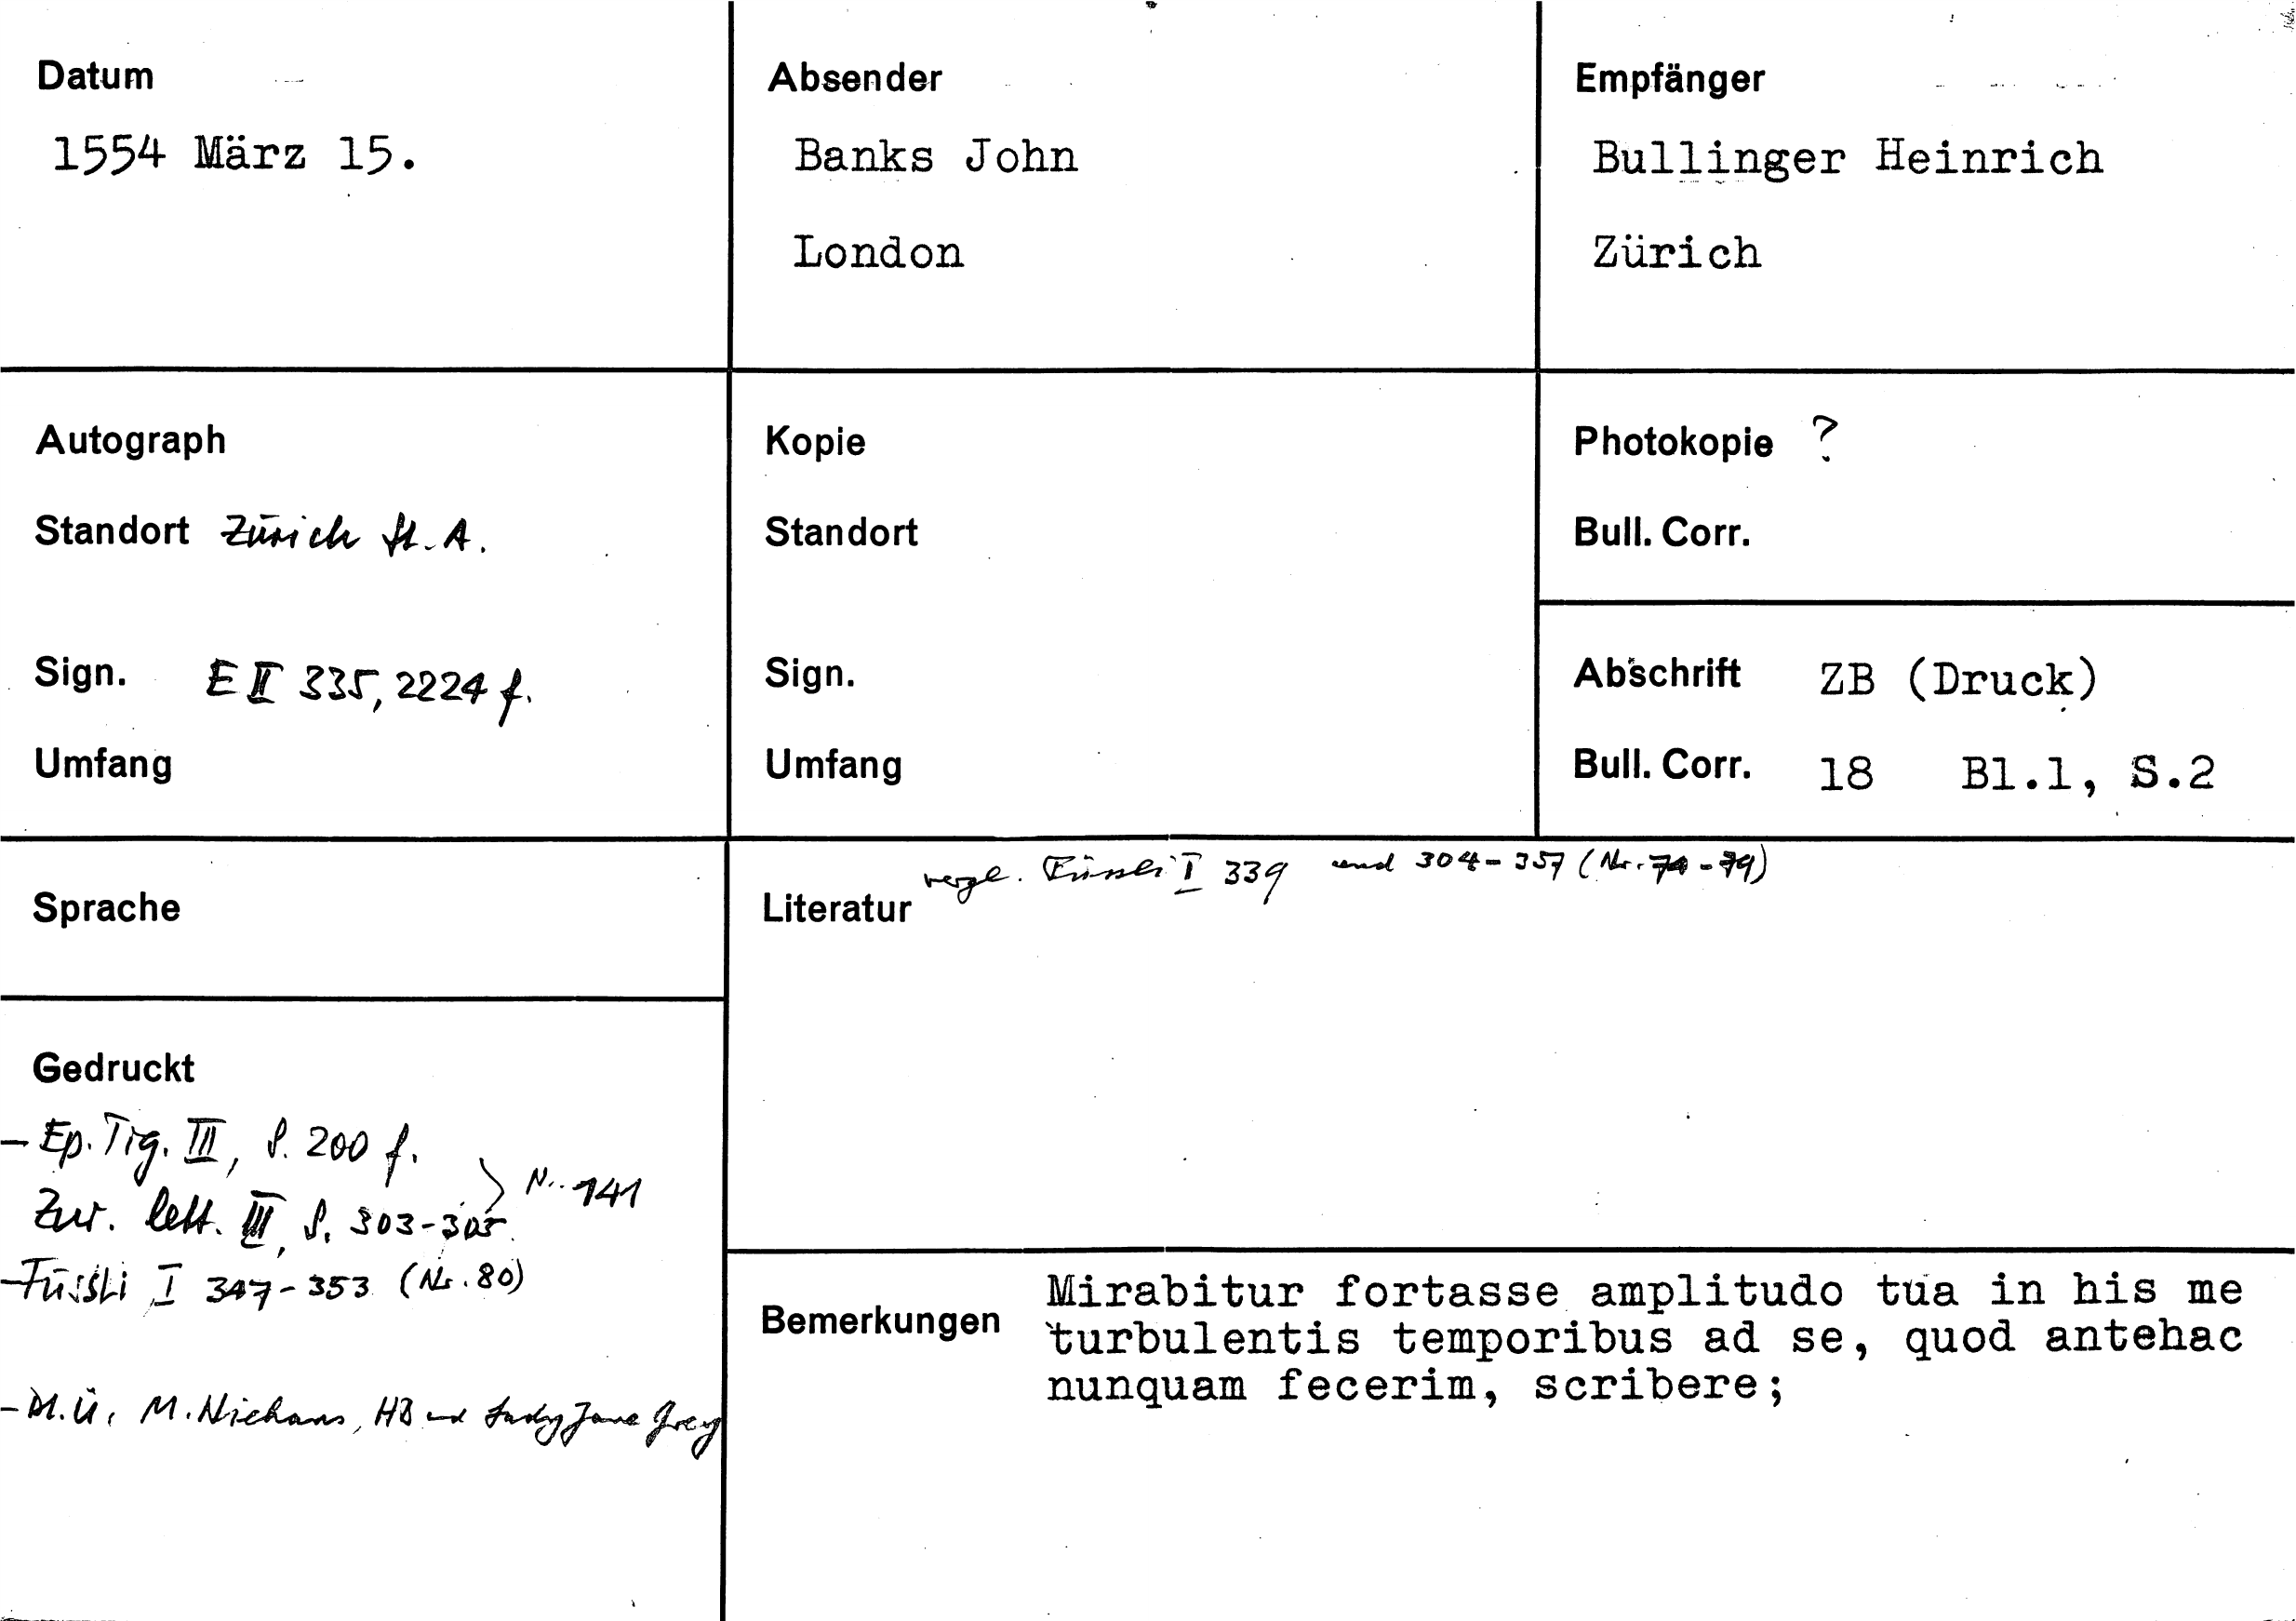 Datum
1554 März 15.
Absender
Banks John
London
Empfänger
Bullinger Heinrich
Zürich
Autograph
Standort Zürich St. A.
Sign. E II 335, 2224 f.
Umfang
Kopie
Standort
Sign.
Umfang
Photokopie ?
Bull. Corr.
Abschrift ZB (Druck)
Bull. Corr. 18 Bl.1, S.2
Sprache
Gedruckt
- Ep. Tig. III, S. 200 f.
Zur. lett. III, S. 303-305.
Nr. 141
- Füssli I 347-353 (Nr. 80)
- M. Niehans, HB und Lady Jane Grey
Literatur vergl. Füssli I 339 und 304-357 (Nr. 74-79)
Bemerkungen
Mirabitur fortasse amplitudo tua in his me
turbulentis temporibus ad se, quod antehac
nunquam fecerim, scribere;